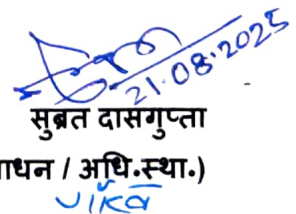 21.08.2025
सुब्रत दासगुप्ता
ाधन / अधि.स्था.)